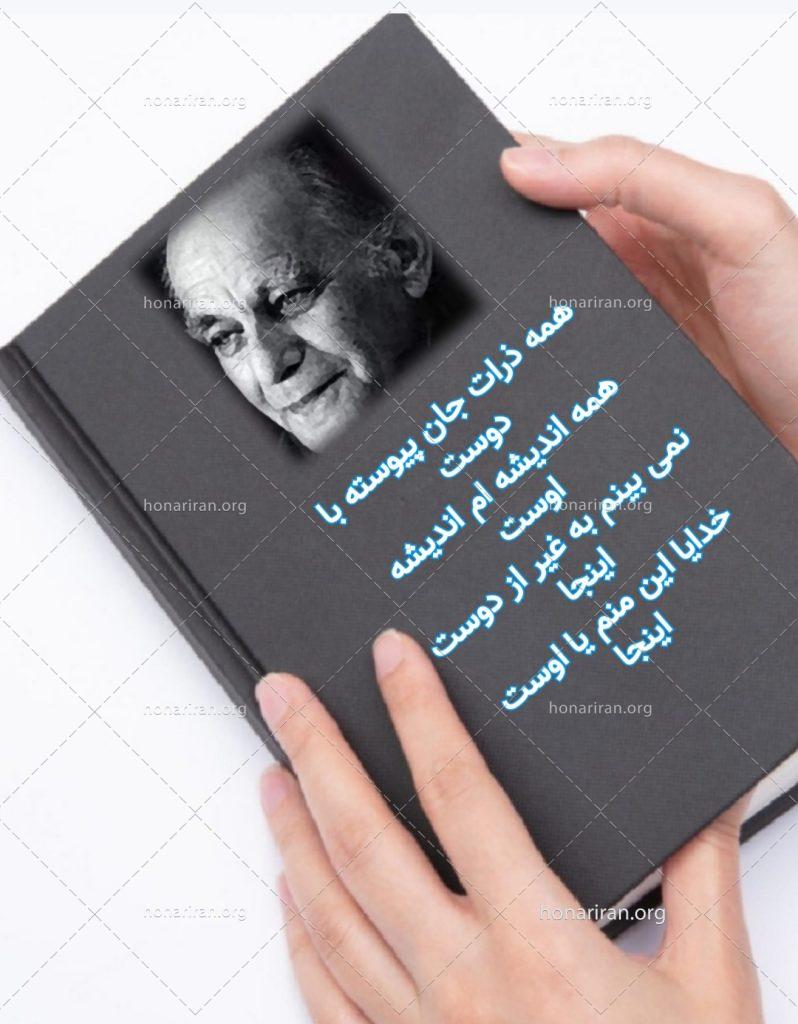 honariran.org honariran.org
honariran.org honariran.org
همه ذرات جان پیوسته با
دوست
همه اندیشه ام اندیشه
اوست
نمی بینم به غیر از دوست
اینجا
خدایا این منم یا اوست
اینجا
honariran.org honariran.org
honariran.org honariran.org
honariran.org honariran.org